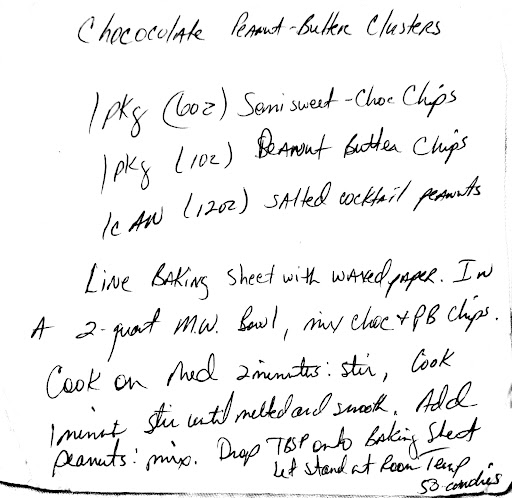 Chococolate Peanut-Butter Clusters
1 pkg (6oz) Semi sweet-Choc Chips
1 pkg (10z) Peanut Butter Chips
1 can (12oz) salted cocktail peanuts
Line Baking Sheet with waxed paper. In
A 2-quart M.W. Bowl, mix choc + PB Chips.
Cook on Med 2 minutes: stir, Cook
1 minut stir until melted and smooth. Add
peanuts: mix. Drop TBSP onto Baking Sheet
Let Stand at Room Temp
53 candies